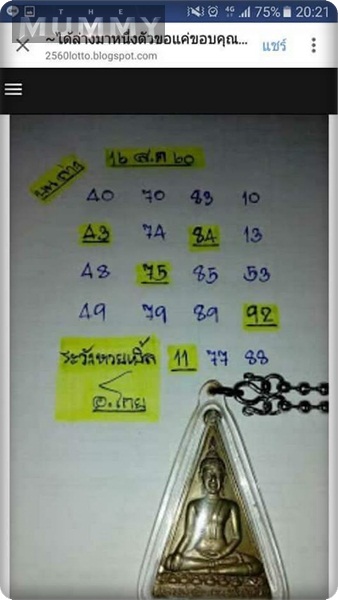 THE
MUMMY
4G 75% 20:21
~ได้ล่างมาหนึ่งตัวขอแค่ขอบคุณ...
2560lotto.blogspot.com
แชร์
16 ส.ค 60
40 70 83 10
43 74 84 13
48 75 85 53
49 79 89 92
ระวังหวยเบิ้ล 11 77 88